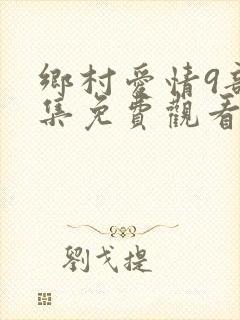 鄉村愛情9部
集免費觀看
劉戈提